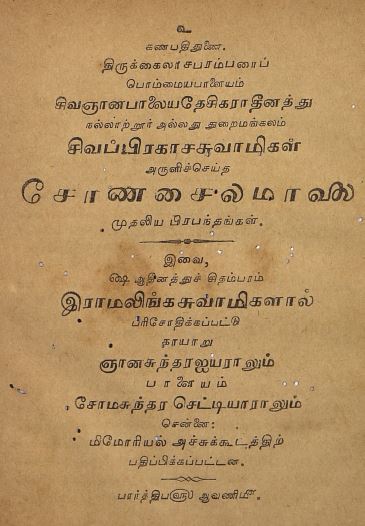 உ
கணபதிதுணை.
திருக்கைலாசபரம்பரைப்
பொம்மையபாளையம்
சிவஞானபாலையதேசிகராதீனத்து
நல்லாற்றூர் அல்லது துறைமங்கலம்
சிவப்பிரகாசசுவாமிகள்
அருளிச்செய்த
சோணசைலமாலை
முதலிய பிரபந்தங்கள்.
இவை,
௸ ஆதீனத்துச் சிதம்பரம்
இராமலிங்கசுவாமிகளால்
பரிசோதிக்கப்பட்டு
நாயாறு
ஞானசுந்தரஐயராலும்
பாளையம்
சோமசுந்தர செட்டியாராலும்
சென்னை:
மிமோரியல் அச்சுக்கூடத்திற்
பதிப்பிக்கப்பட்டன.
பார்த்திப௵ ஆவணி௴.